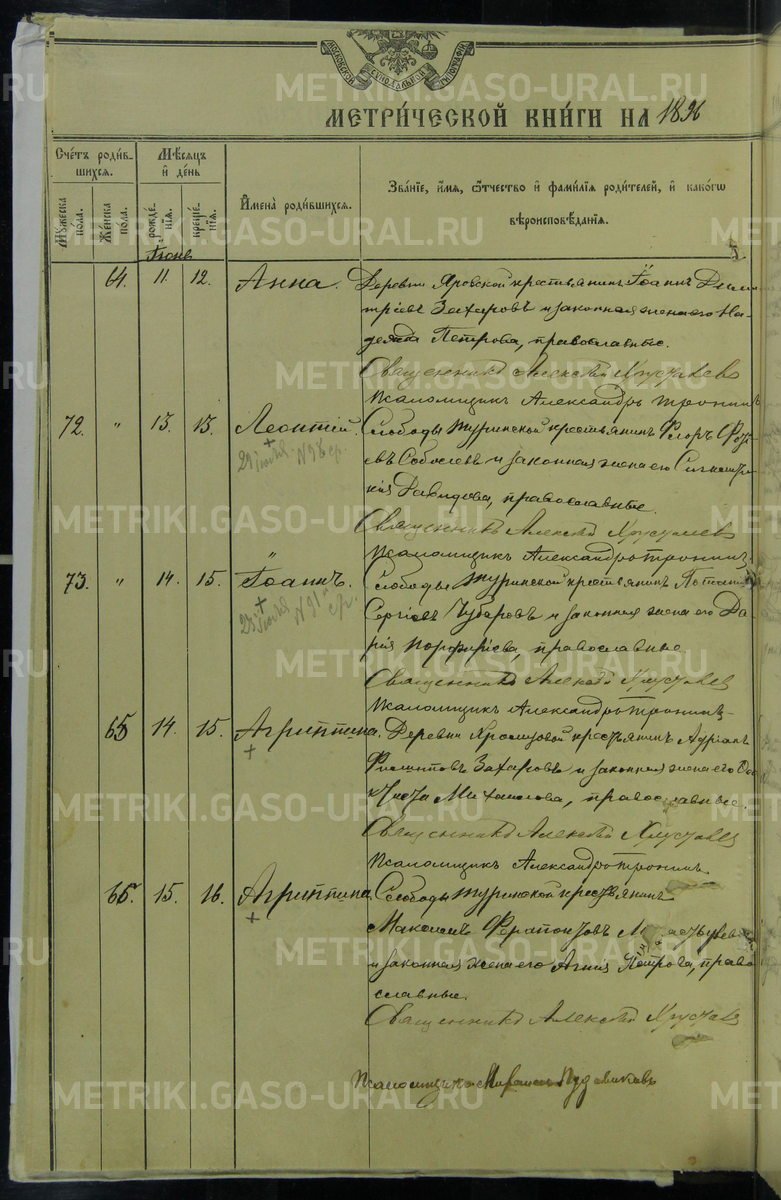 МОСКОВСКОЙ СУНОДАЛЬНОЙ ТИПОГРАФІИ
МЕТРИ́ЧЕСКОЙ КНИ́ГИ НА 1896
Сче́тъ роди́в-
шихся.
Мѣ́сяцъ
и де́нь
Имена̀ роди́вшихся.
Зва́ніе, и́мя, ѻ́тчество и фами́лія роди́телей, и како́гѡ
вѣроисповѣ́данія.
Му́жеска
по́ла.
Же́нска
по́ла.
рожде́-
нія.
креще́-
нія.
Іюнь
64. 11. 12. Анна. Деревни Яровской крестьянинъ Іоаннъ Дими-
тріевъ Захаровъ и законная жена его На-
дежда Петрова, православные.
Священникъ Алексѣй Хрусталев
Псаломщикъ Александръ Тронинъ
72. " 13. 13. Леонтій. Слободы Туринской крестьянинъ Ѳедоръ
29 іюля № 98 ср.
въ Соболевъ и законная жена его
Давидова, православные.
Священникъ Алексѣй Хрусталев
Псаломщикъ Александръ Тронинъ
73. " 14. 15. Іоаннъ. Слободы Туринской крестьянинъ
23 іюля № 91 ср.
Сергіевъ Чубаровъ и законная жена его Да-
рія Порфиріева, православные
Священникъ Алексѣй Хрусталев
Псаломщикъ Александръ Тронинъ
65 14. 15. Агриппина. Деревни крестьянинъ Адріанъ
Филипповъ Захаровъ и законная жена его
Михаилова, православные.
Священникъ Алексѣй Хрусталев
Псаломщикъ Александръ Тронинъ
66. 15. 16. Агриппина Слободы Туринской крестьянинъ
Максимъ Ферапонтовъ
и законная жена его Агнія Петрова, право-
славные.
Священникъ Алексѣй Хрусталев
Псаломщикъ
METRIKI.GASO-URAL.RU